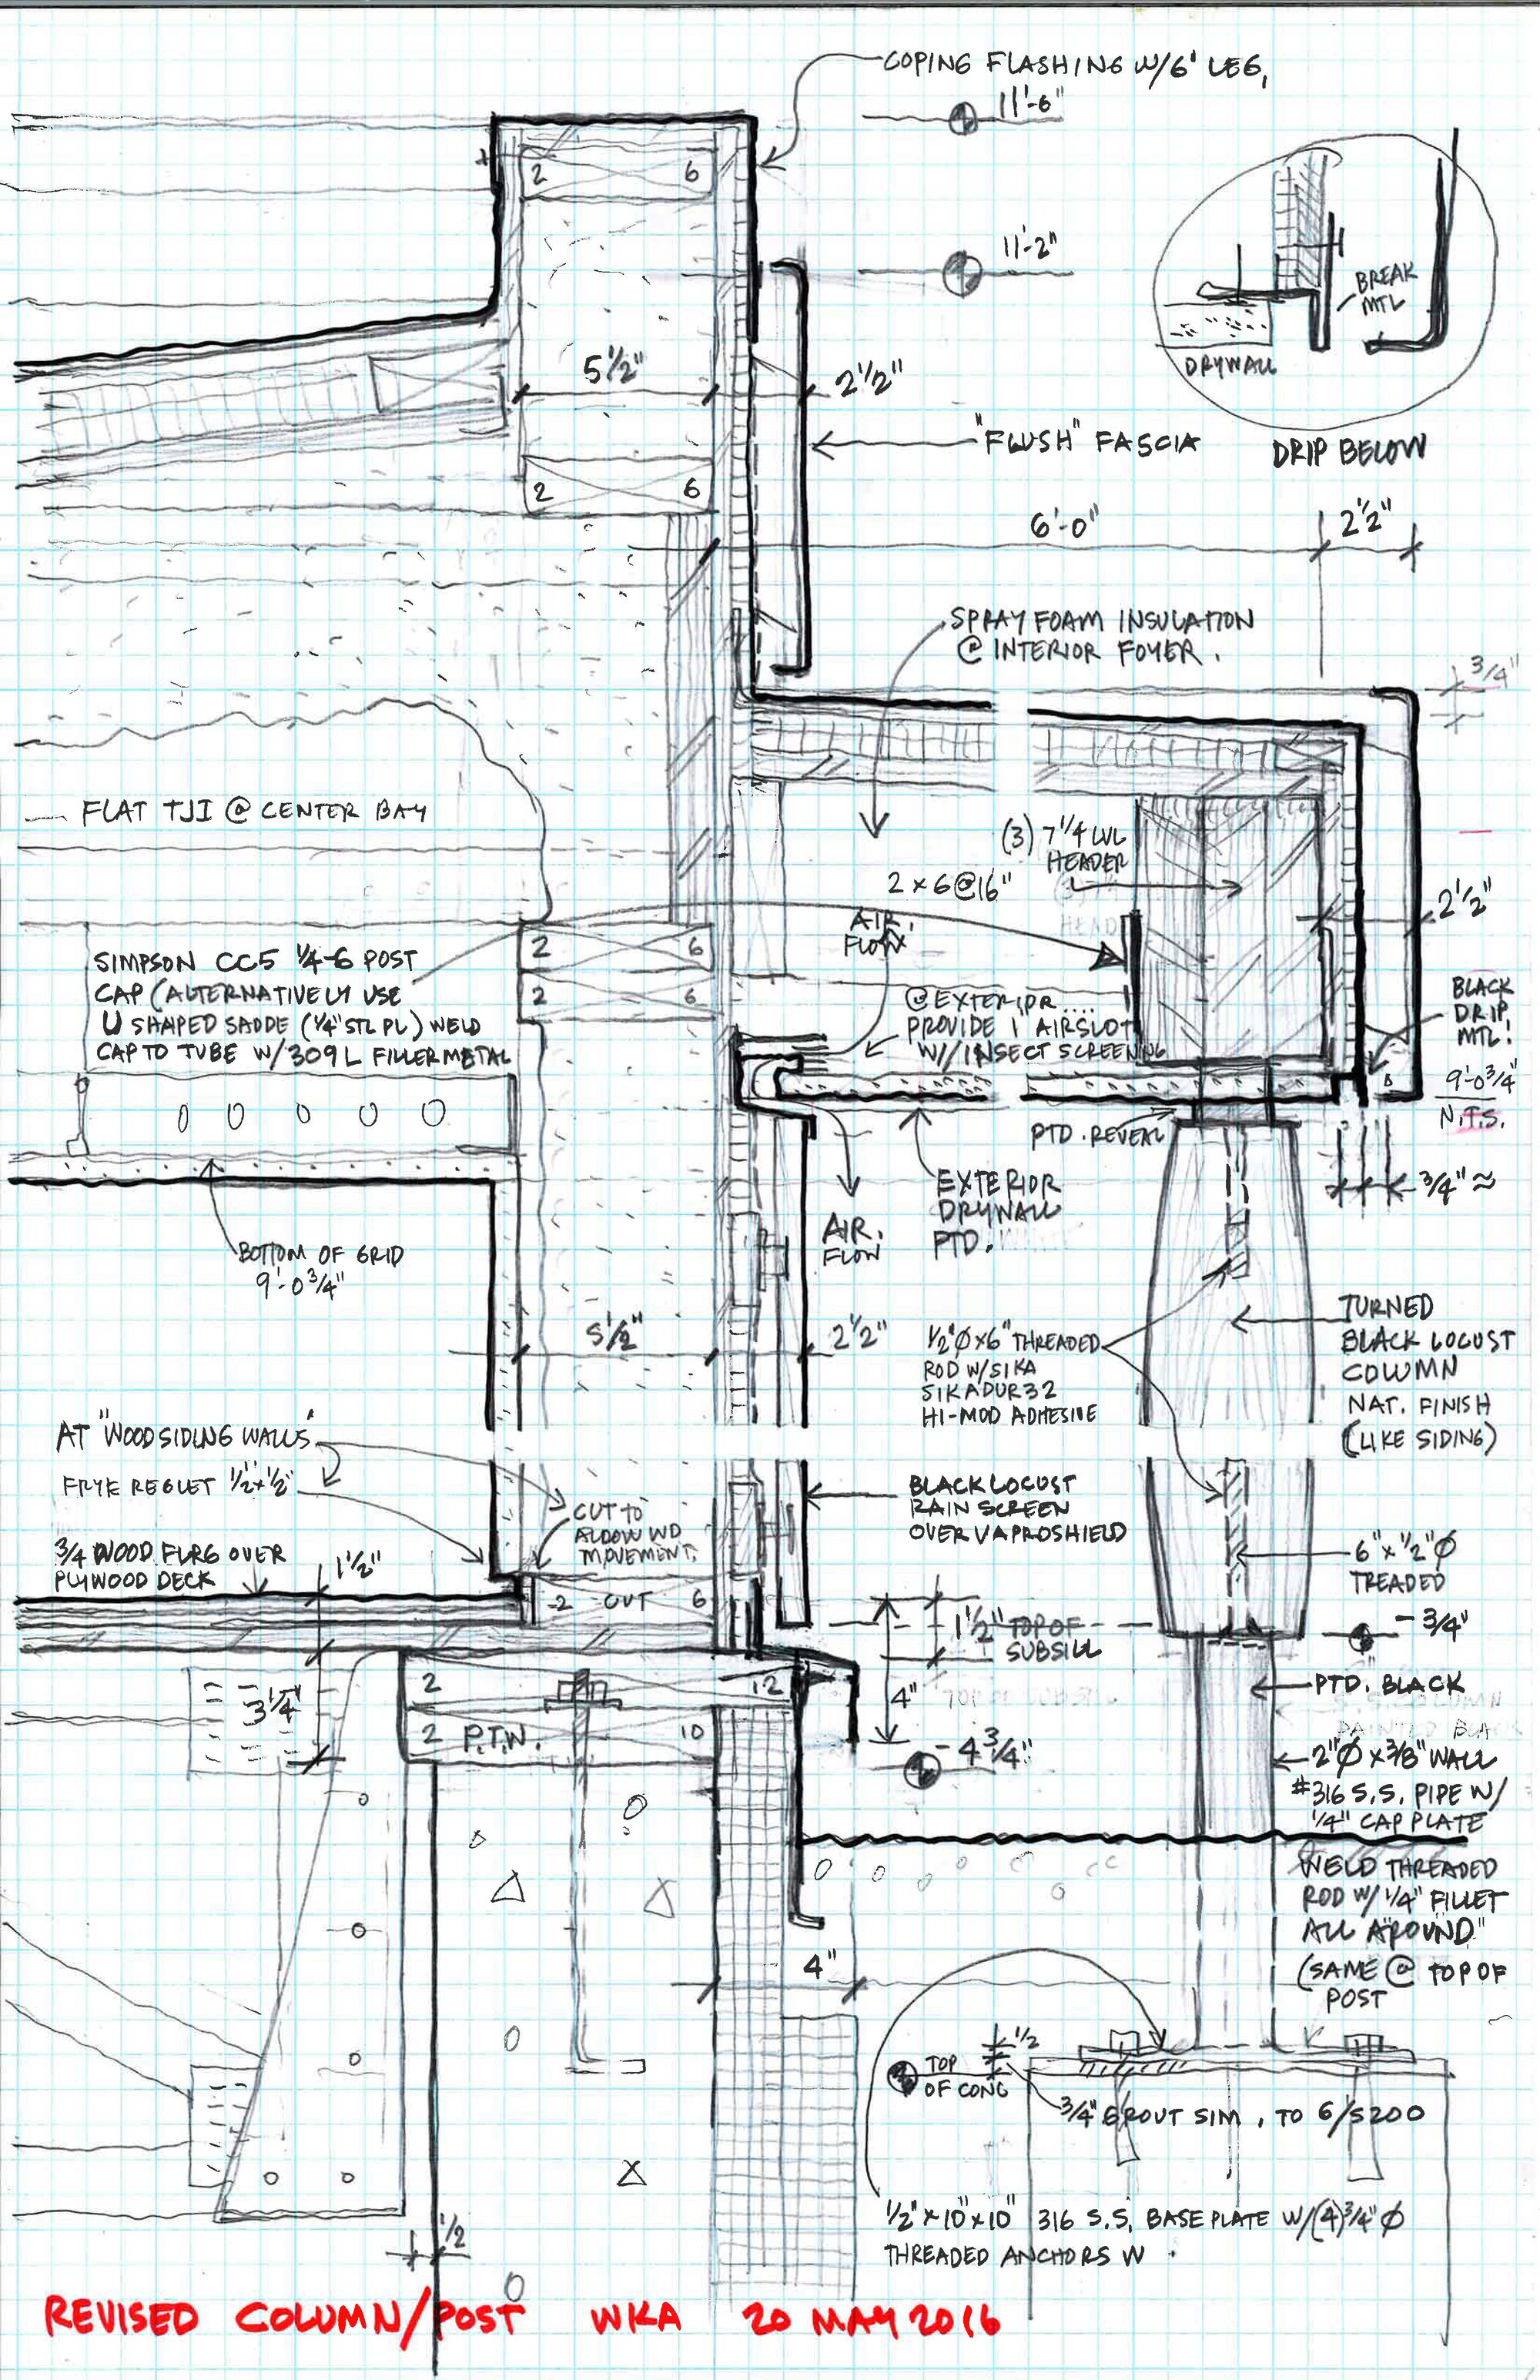 COPING FLASHING W/6" LEG,
11'-6"
2 6
11'-2"
BREAK
MTL
DRYWALL
DRIP BELOW
5 1/2"
2 1/2"
"FLUSH" FASCIA
2 6
6'-0"
2 1/2"
SPRAY FOAM INSULATION
@ INTERIOR FOYER.
3/4"
FLAT TJI @ CENTER BAY
(3) 7 1/4 LVL
HEADER
2 x 6 @ 16"
2 1/2"
AIR
FLOW
2 6
2 6
SIMPSON CC5 1/4-6 POST
CAP (ALTERNATIVELY USE
U SHAPED SADDE (1/4" STL PL) WELD
CAP TO TUBE W/ 309 L FILLER METAL
@ EXTERIOR....
PROVIDE 1 AIRSLOT
W/ INSECT SCREENING
BLACK
DRIP
MTL!
9'-0 3/4"
N.T.S.
PTD. REVEAL
3/4" ≈
EXTERIOR
DRYWALL
PTD.
AIR
FLOW
BOTTOM OF GRID
9'-0 3/4"
5 1/2"
2 1/2"
1/2"Ø x 6" THREADED
ROD W/ SIKA
SIKADUR 32
HI-MOD ADHESIVE
TURNED
BLACK LOCUST
COLUMN
NAT. FINISH
(LIKE SIDING)
AT "WOOD SIDING WALLS"
FRYE REGLET 1/2" x 1/2"
CUT TO
ALLOW WD
MOVEMENT.
BLACK LOCUST
RAIN SCREEN
OVER VAPROSHIELD
3/4 WOOD FLRG OVER
PLYWOOD DECK
1 1/2"
2 CUT 6
6" x 1/2" Ø
TREADED
1 1/2" TOP OF
SUBSILL
- 3/4"
2 12
4"
PTD. BLACK
3 1/4"
2 P.T.W. 10
- 4 3/4"
2"Ø x 3/8" WALL
#316 S.S. PIPE W/
1/4" CAP PLATE
WELD THREADED
ROD W/ 1/4" FILLET
ALL AROUND"
(SAME @ TOP OF
POST
4"
1/2
TOP
OF CONC
3/4" GROUT SIM. TO 6/S200
1/2" x 10" x 10" 316 S.S. BASE PLATE W/(4) 3/4" Ø
THREADED ANCHORS W
1/2
REVISED COLUMN/POST WKA 20 MAY 2016